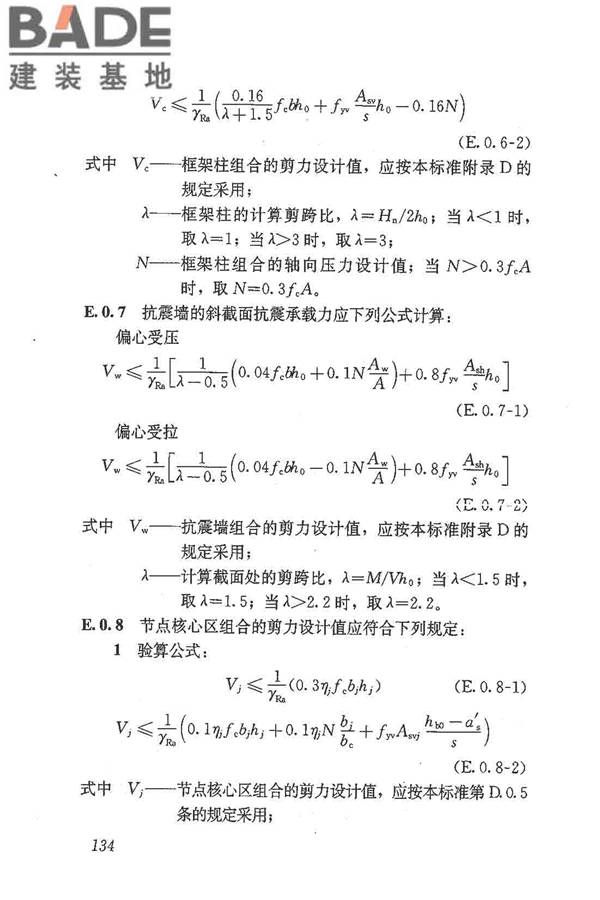 BADE
建装基地
V_c≤1/γ_Ra(0.16/(λ+1.5) f_c b h_0+f_yv A_sv/s h_0-0.16N)
(E.0.6-2)
式中 V_c——框架柱组合的剪力设计值，应按本标准附录D的
规定采用；
λ——框架柱的计算剪跨比，λ=H_n/2h_0；当λ<1时，
取λ=1；当λ>3时，取λ=3；
N——框架柱组合的轴向压力设计值；当N>0.3f_cA
时，取N=0.3f_cA。
E.0.7 抗震墙的斜截面抗震承载力应下列公式计算：
偏心受压
V_w≤1/γ_Ra[1/(λ-0.5)(0.04f_c b h_0+0.1N A_w/A)+0.8f_yv A_sh/s h_0]
(E.0.7-1)
偏心受拉
V_w≤1/γ_Ra[1/(λ-0.5)(0.04f_c b h_0-0.1N A_w/A)+0.8f_yv A_sh/s h_0]
(E.0.7-2)
式中 V_w——抗震墙组合的剪力设计值，应按本标准附录D的
规定采用；
λ——计算截面处的剪跨比，λ=M/Vh_0；当λ<1.5时，
取λ=1.5；当λ>2.2时，取λ=2.2。
E.0.8 节点核心区组合的剪力设计值应符合下列规定：
1 验算公式：
V_j≤1/γ_Ra(0.3η_j f_c b_j h_j) (E.0.8-1)
V_j≤1/γ_Ra(0.1η_j f_c b_j h_j+0.1η_j N b_j/b_c+f_yv A_svj (h_b0-a'_s)/s)
(E.0.8-2)
式中 V_j——节点核心区组合的剪力设计值，应按本标准第D.0.5
条的规定采用；
134